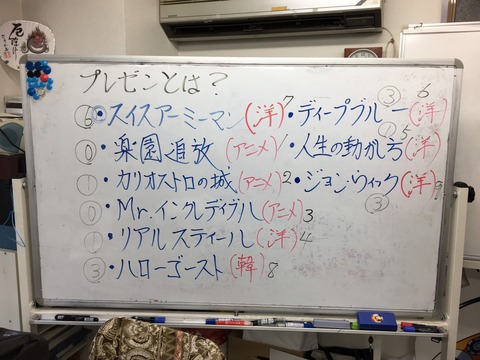 プレゼンとは?
⑥・スイスアーミーマン(洋)7
⓪・楽園追放(アニメ)1
①・カリオストロの城(アニメ)2
⓪・Mr.インクレディブル(アニメ)3
①・リアルスティール(洋)4
③・ハローゴースト(韓)8
③ 6
・ディープブルー(洋)
① 5
・人生の動かし方(洋)
・ジョン・ウィック(洋)9
③